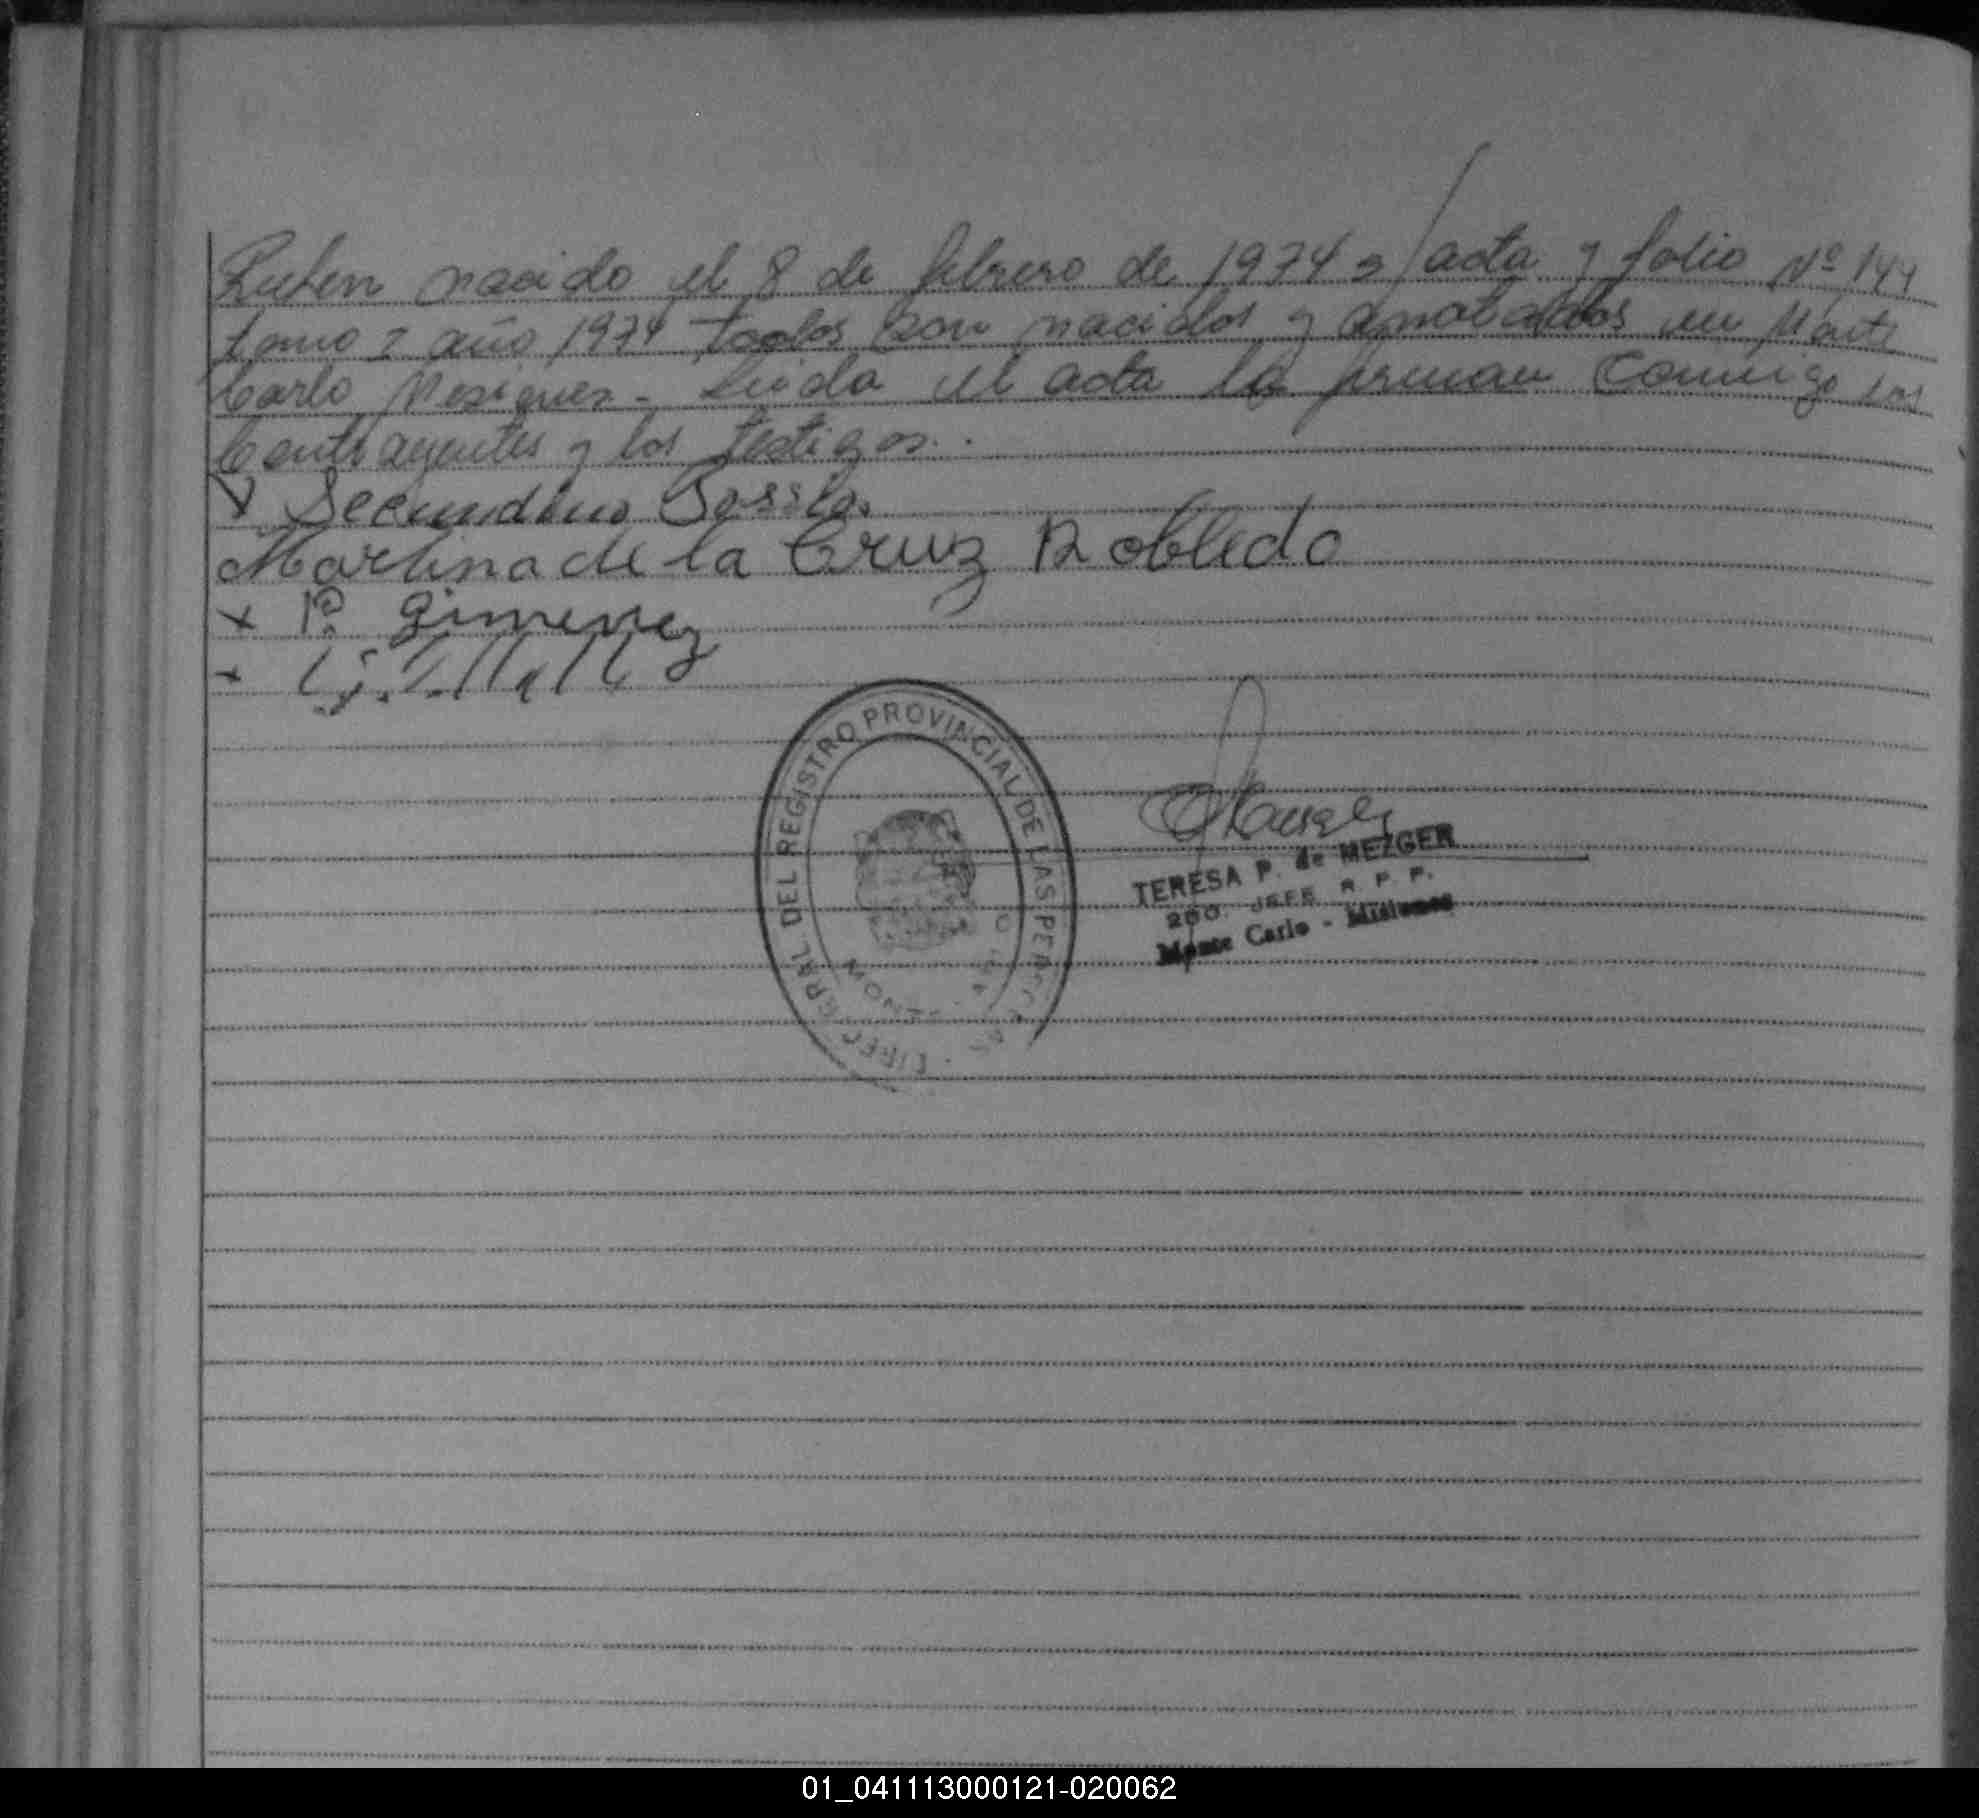 Ruben nacido el 8 de febrero de 1974 s/acta y folio Nº 144
tomo I año 1974 todos son nacidos y anotados en Monte
Carlo Misiones - Leida el acta la firman conmigo los
Contrayentes y los testigos.-
Secundino
Martina de la Cruz Robledo
x P. Gimenez
DIREC. GERAL DEL REGISTRO PROVINCIAL DE LAS PERSONAS
TERESA P. de MEZGER
2DO. JEFE R. P. P.
Monte Carlo - Misiones
01_041113000121-020062